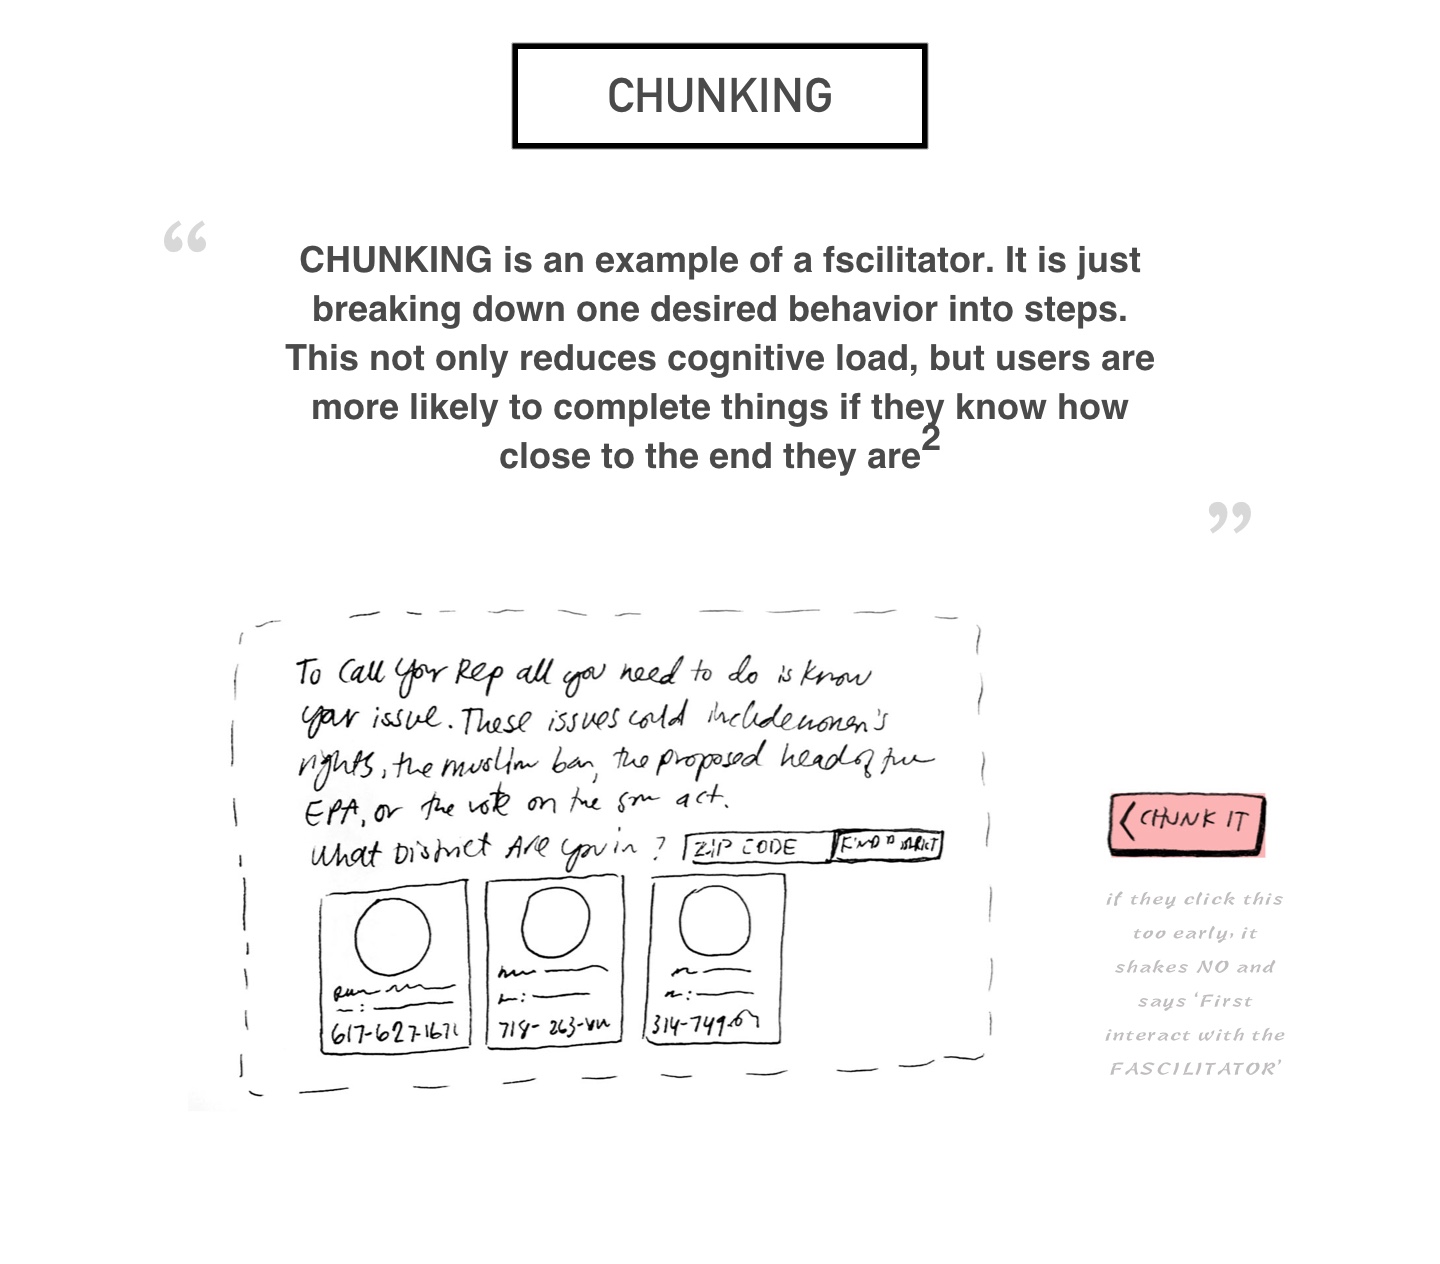 CHUNKING
“
CHUNKING is an example of a fscilitator. It is just
breaking down one desired behavior into steps.
This not only reduces cognitive load, but users are
more likely to complete things if they know how
close to the end they are2
”
To Call Your Rep all you need to do is know
your issue. These issues could include women's
rights, the muslim ban, the proposed head of the
EPA, or the vote on the act.
What District Are you in ? ZIP CODE FIND DISTRICT
617-627-1671
718-263-
314-749-
< CHUNK IT
if they click this
too early, it
shakes NO and
says ‘First
interact with the
FASCILITATOR’